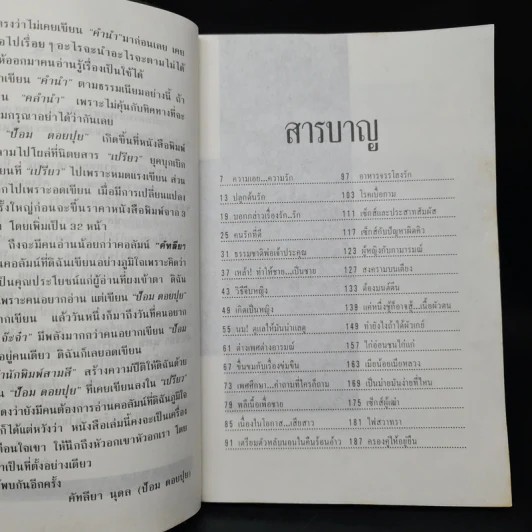 รงว่าไม่เคยเขียน "คำนำ" มาก่อนเลย เคย
อไปเรื่อย ๆ อะไรจะนำอะไรจะตามไม่ได้
ห้ออกมาคนอ่านรู้เรื่องเป็นใช้ได้
าเขียน "คำนำ" ตามธรรมเนียมอย่างนี้ ถ้า
น "คลำนำ" เพราะไม่คุ้นกับทิศทางที่จะ
มกรุณาอย่าได้ว่ากันเลย
"ป้อม ตอยปุย" เกิดขึ้นที่หนังสือพิมพ์
ามไปโผล่ที่นิตยสาร "เปรียว" ยุคบุกเบิก
ยนที่ "เปรียว" เพราะหมดแรงเขียน ส่วน
ักไปเพราะอดเขียน เมื่อมีการเปลี่ยนแปลง
รั้งใหญ่ก่อนจะขึ้นราคาหนังสือพิมพ์จาก 3
โดยเพิ่มเป็น 32 หน้า
ถึงจะมีคนอ่านน้อยกว่าคอลัมน์ "คัทลียา
คอลัมน์ที่ดิฉันเขียนอย่างภูมิใจเพราะคิดว่า
เป็นคุณประโยชน์แก่ผู้อ่านที่ยงเข้าตา ดิฉัน
เพราะคนอยากอ่าน แต่เขียน "ป้อม ตอยปุย"
ากเขียน แล้ววันหนึ่งก็มาถึงวันที่คนอยาก
"จ๊ะจ๋า" มีพลังมากกว่าคนอยากเขียน "ป้อม
อยู่คนเดียว ดิฉันก็เลยอดเขียน
านักพิมพ์สามสี" สร้างความปีติให้ดิฉันด้วย
"ป้อม ตอยปุย" ที่เคยเขียนลงใน "เปรียว"
ดงว่ายังมีคนต้องการอ่านคอลัมน์ที่ดิฉันภูมิใจ
ก็ได้แต่หวังว่า หนังสือเล่มนี้คงจะเป็นเครื่อง
ตือนใจเขา ให้นึกถึงหัวอกเขาหัวอกเรา โดย
าเป็นที่ตั้งอย่างเดียว
พบกันอีกครั้ง
คัทลียา นุดล (ป้อม ตอยปุย)
สารบาญ
7 ความเลย...ความรัก
13 ปลูกต้นรัก
19 บอกกล่าวเรื่องรัก..รัก
25 คนรักที่ดี
31 ธรรมชาติพ่อเจ้าประคุณ
37 เหล้า! ทำให้ชาย...เป็นชาย
43 วิธีจีบหญิง
49 เกิดเป็นหญิง
55 นม! ดูแลให้มันน่าเกตุ
61 ต่างเพศต่างอารมณ์
67 ขื่นขมกับเรื่องข่มขืน
73 เพศศึกษา...คำถามที่ใครก็ถาม
79 พลีเนื้อเพื่อชาย
85 เนื่องในโอกาส...เสียสาว
91 เตรียมตัวหลับนอนในคืนร้อนอ้าว
97 อาหารจรรโลงรัก
103 โรคเบื่อกาม
111 เซ็กส์และประสาทสัมผัส
117 เซ็กส์กับปัญหาผิดคิว
123 ผู้หญิงกับกามารมณ์
127 สงครามบนเตียง
133 ต้องมนต์ตีน
139 แค่หนึ่งชู้ก็อาจสู้...เนื้อผัวตน
149 ทำยังไงถ้าได้ผัวเกย์
157 ไก่อ่อนชนไก่แก่
163 เมียน้อยเมียหลวง
169 เป็นม่ายมันง่ายที่ไหน
175 เซ็กส์ผู้เฒ่า
181 ไฟสวาทรา
187 ครองคู่ให้อยู่ยืน